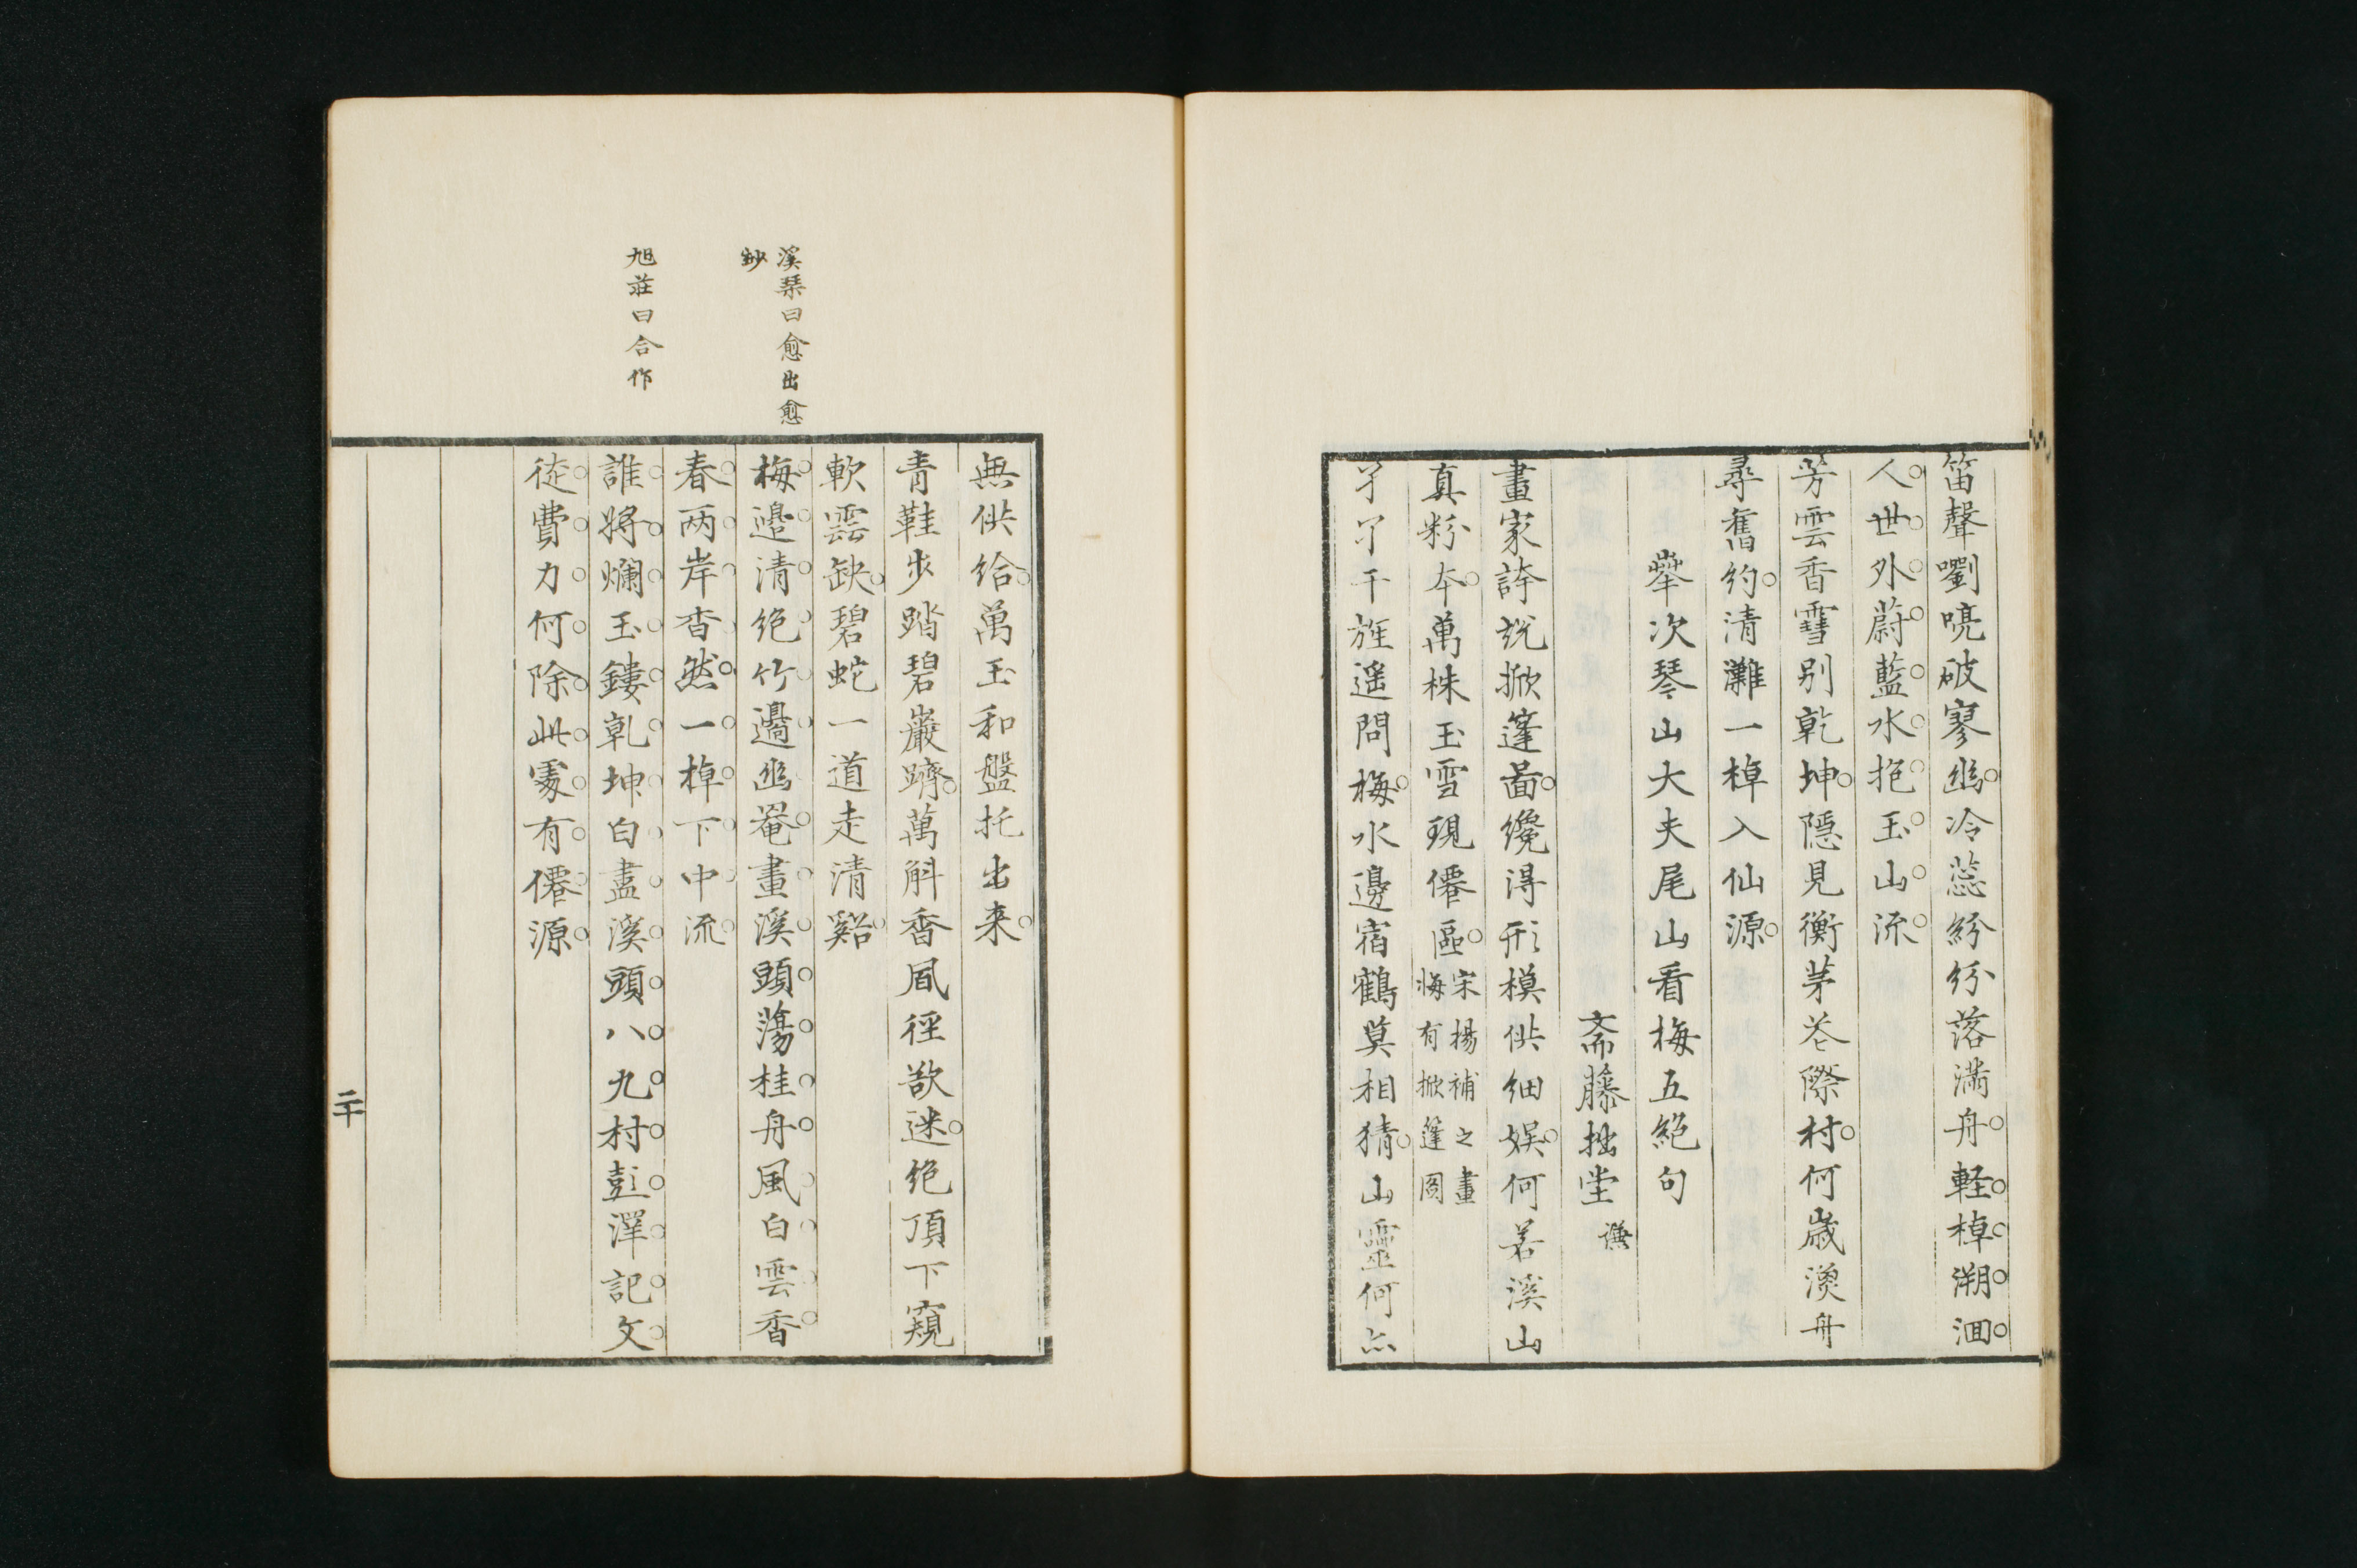 笛聲嚠喨破寥幽冷蕊紛紛落滿舟軽棹溯洄
人世外蔚藍水抱玉山流
芳雲香雪别乾坤隱見衡茅花際村何歲漁舟
尋舊約清灘一棹入仙源
犖次琴山大夫尾山看梅五絶句
斎藤拙堂 謙
畫家誇説掀篷啚纔淂形模供細娯何若溪山
真粉夲萬株玉雪現僊區宋楊補之畫
梅有掀篷圖
孑孑干旌遥問梅水邊宿鶴莫相猜山靈何亦
無供給萬玉和盤托出来
青鞋步踏碧巖躋萬斛香凮徑欲迷絶頂下窺
軟雲缺碧蛇一道走清谿
溪琴曰愈出愈
鈔
梅邊清絶竹邊幽罨畫溪頭蕩桂舟風白雲香
春两岸杳然一棹下中流
旭荘曰合作
誰將爛玉鏤乹坤白盡溪頭八九村彭澤記文
徒費力何除此䖏有僊源
二十